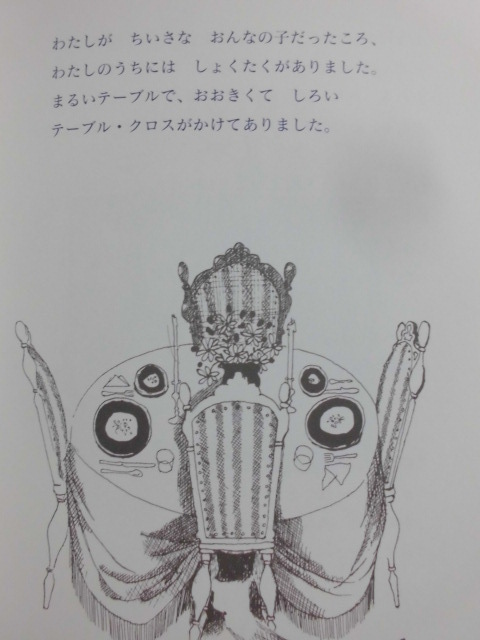 わたしが　ちいさな　おんなの子だったころ、
わたしのうちには　しょくたくがありました。
まるいテーブルで、おおきくて　しろい
テーブル・クロスがかけてありました。